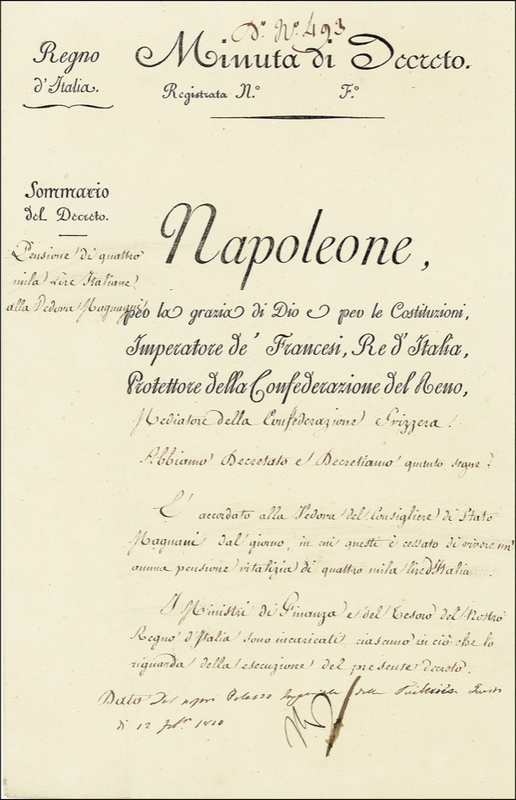 D.º N.º 493
Regno
d'Italia.
Minuta di Decreto.
Registrata N.º F.º
Sommario
del Decreto.
Pensione di quattro
mila lire Italiane
alla Vedova Magnani
Napoleone,
per la grazia di Dio e per le Costituzioni,
Imperatore de' Francesi, Re d'Italia,
Protettore della Confederazione del Reno,
Mediatore della Confederazione Svizzera!
Abbiamo Decretato e Decretiamo quanto segue:
E' accordato alla Vedova del Consigliere di Stato
Magnani dal giorno, in cui questi è cessato di vivere un'
annua pensione vitalizia di quattro mila lire d'Italia.
I Ministri di Finanza e del Tesoro del Nostro
Regno d'Italia sono incaricati, ciascuno in ciò che lo
riguarda della esecuzione del presente decreto.
Dato dal Palazzo Imperiale delle
di 12 1810